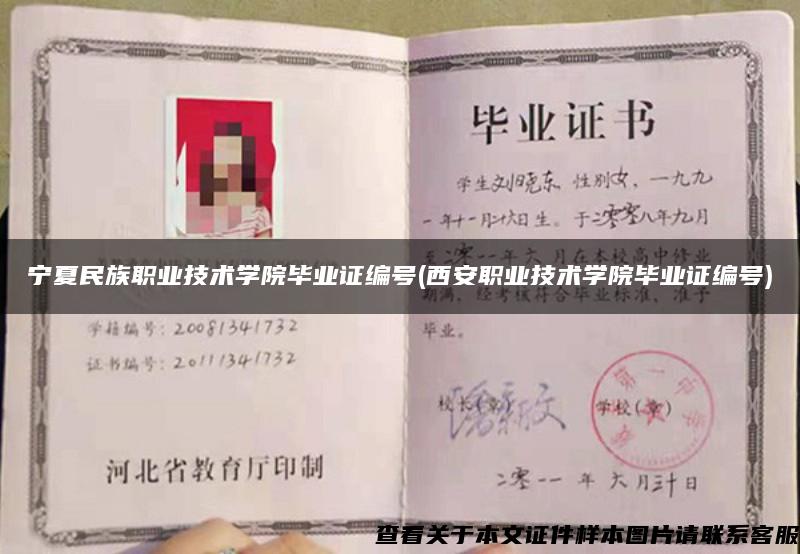 毕业证书
学生刘晓东 性别女，一九九
一年十一月二十六日生。于二零零八年九月
至二零一一年六月在本校高中修业
期满，经考核符合毕业标准，准予
毕业。
宁夏民族职业技术学院毕业证编号(西安职业技术学院毕业证编号)
学籍编号：20081341732
证书编号：20111341732
河北省教育厅印制
校长(章)
学校(章)
第一中学
二零一一年六月三十日
查看关于本文证件样本图片请联系客服